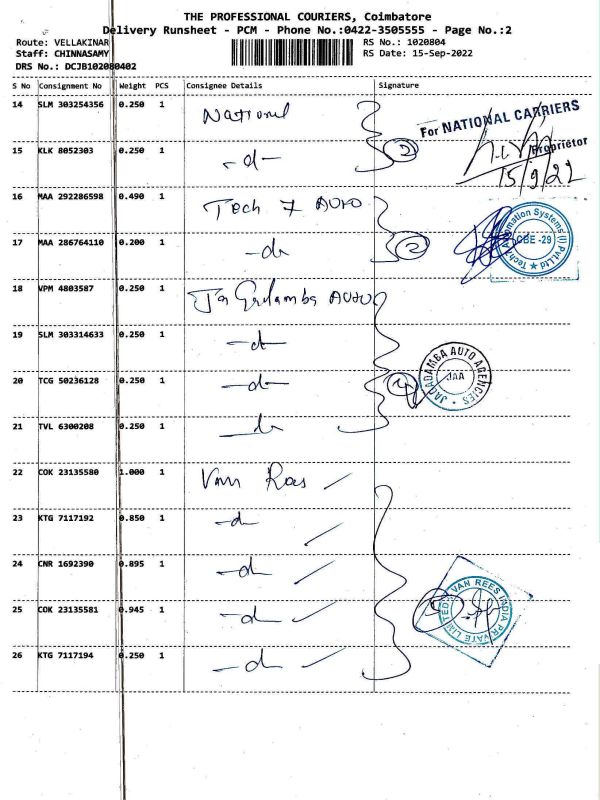 THE PROFESSIONAL COURIERS, Coimbatore
Delivery Runsheet - PCM - Phone No.:0422-3505555 - Page No.:2
Route: VELLAKINAR RS No.: 1020804
Staff: CHINNASAMY RS Date: 15-Sep-2022
DRS No.: DCJB102080402
S No Consignment No Weight PCS Consignee Details Signature
14 SLM 303254356 0.250 1 National
For NATIONAL CARRIERS
Proprietor
15 KLK 8052303 0.250 1 -d- 2
15/9/22
16 MAA 292286598 0.490 1 Tech 7 Auto
17 MAA 286764110 0.200 1 -d- 2
Tech Automation Systems (I) Pvt.Ltd
CBE -29
18 VPM 4803587 0.250 1 Auto
19 SLM 303314633 0.250 1 -d-
20 TCG 50236128 0.250 1 -d- 4
JAGADAMBA AUTO AGENCIES
JAA
21 TVL 6300208 0.250 1 -d-
22 COK 23135580 1.000 1 Van Rees
23 KTG 7117192 0.850 1 -d-
24 CNR 1692390 0.895 1 -d-
25 COK 23135581 0.945 1 -d-
VAN REES INDIA PRIVATE LIMITED
26 KTG 7117194 0.250 1 -d-